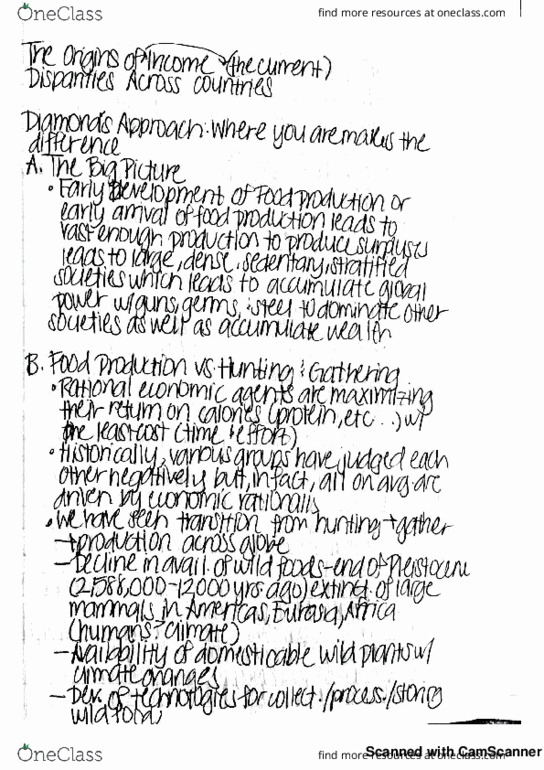 OneClass
find more resources at oneclass.com
The Origins of Income (the current)
Disparities Across Countries
Diamond's Approach: Where you are makes the
difference
A. The Big Picture
• Early Development of Food production or
early arrival of food production leads to
vast enough production to produce surpluses
leads to large, dense, sedentary, stratified
societies which leads to accumulate global
power w/ guns, germs, & steel to dominate other
societies as well as accumulate wealth
B. Food Production vs Hunting & Gathering
• Rational economic agents are maximizing
their return on calories (protein, etc...) w/
the least cost (time & effort)
• Historically, various groups have judged each
other negatively but, in fact, all on avg. are
driven by economic rationalis
• We have seen transition from hunting + gather
→ production across globe
- Decline in avail. of wild foods - end of Pleistocene
(2,588,000-12000 yrs. ago) extinct. of large
mammals in Americas, Eurasia, Africa
(humans? climate)
- Availability of domesticable wild plants w/
climate changes
- Dev. of technologies for collect./process./storing
wild foods
OneClass
find more resources at oneclass.com
Scanned with CamScanner